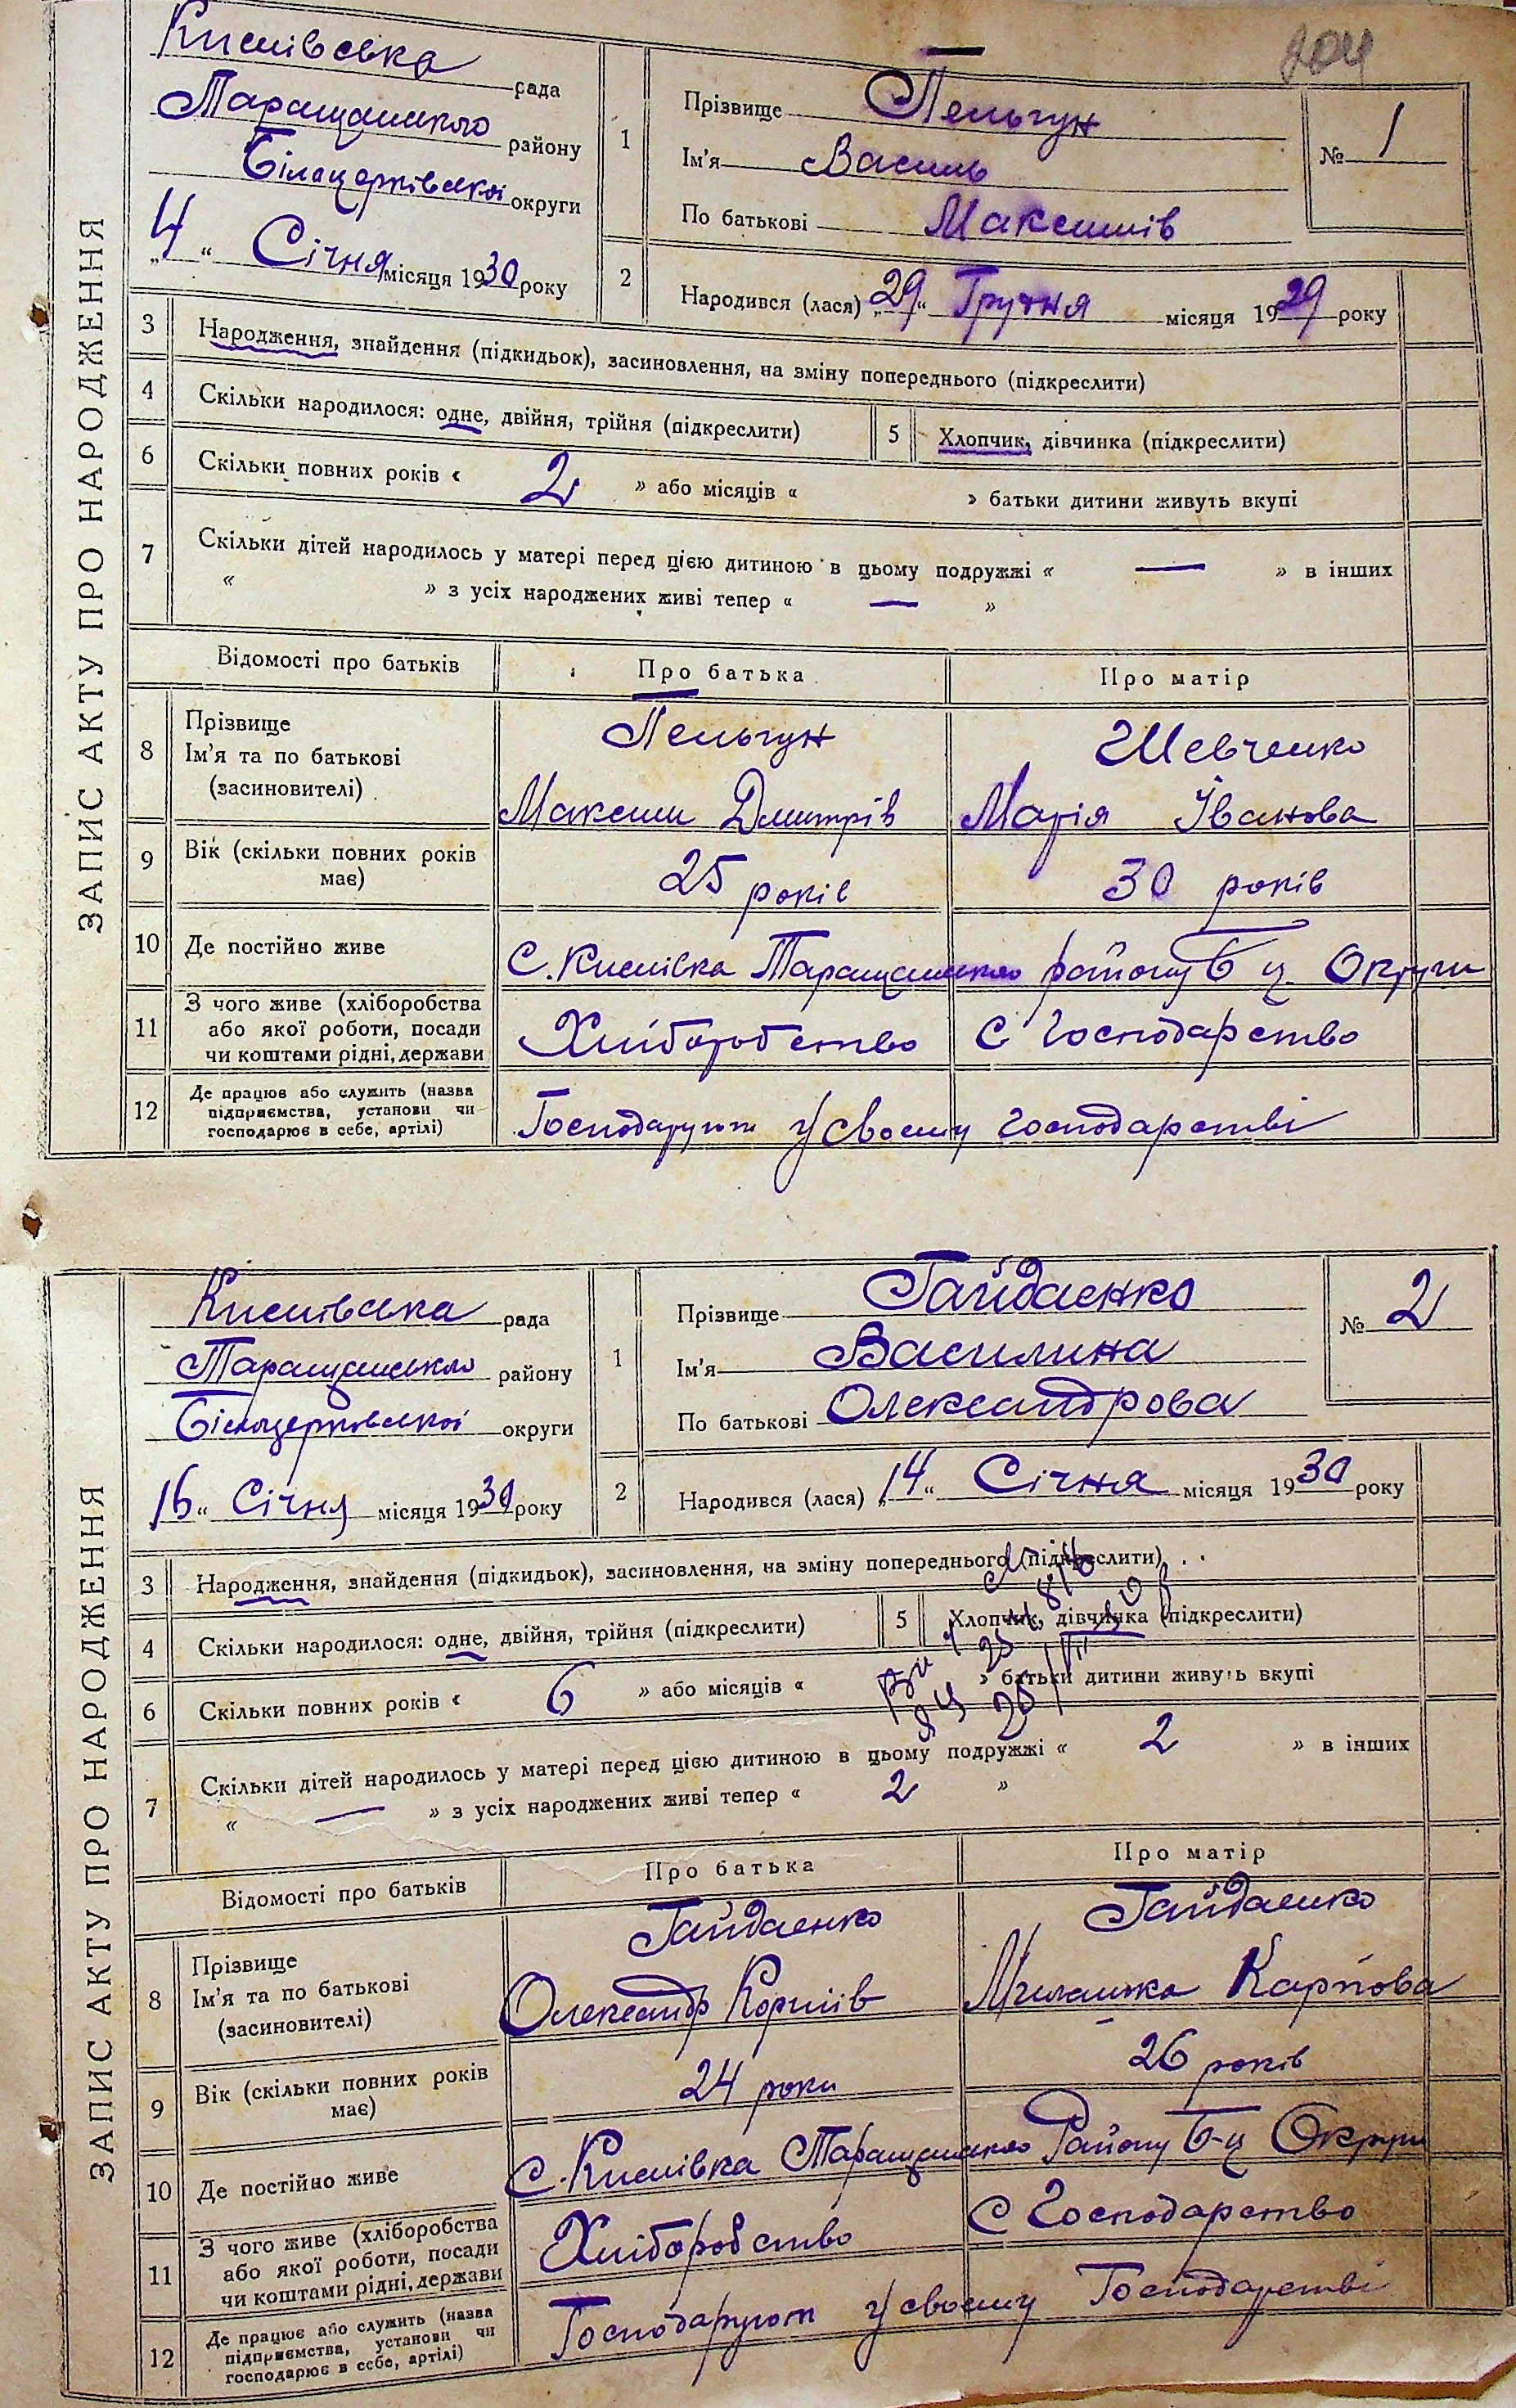 204
ЗАПИС АКТУ ПРО НАРОДЖЕННЯ
Кислівська рада
Таращанського району
Білоцерківської округи
„4“ Січня місяця 1930 року
1
Прізвище Пельгун
Ім'я Василь
По батькові Максимів
№ 1
2
Народився (лася) „29“ Грудня місяця 1929 року
3 Народження, знайдення (підкидьок), засиновлення, на зміну попереднього (підкреслити)
4 Скільки народилося: одне, двійня, трійня (підкреслити) 5 Хлопчик, дівчинка (підкреслити)
6 Скільки повних років « 2 » або місяців « » батьки дитини живуть вкупі
7 Скільки дітей народилось у матері перед цією дитиною в цьому подружжі « — » в інших
« » з усіх народжених живі тепер « — »
Відомості про батьків Про батька Про матір
8 Прізвище Пельгун Шевченко
Ім'я та по батькові
(засиновителі) Максим Дмитрів Марія Іванова
9 Вік (скільки повних років
має) 25 років 30 років
10 Де постійно живе С. Кислівка Таращанського району Б ц. Округи
11 З чого живе (хліборобства
або якої роботи, посади
чи коштами рідні, держави Хліборобство С Господарство
12 Де працює або служить (назва
підприємства, установи чи
господарює в себе, артілі) Господарують у своєму господарстві
ЗАПИС АКТУ ПРО НАРОДЖЕННЯ
Кислівська рада
Таращанського району
Білоцерковської округи
16“ Січня місяця 1930 року
1
Прізвище Гайдаенко
Ім'я Василина
По батькові Олександрова
№ 2
2
Народився (лася) „14“ Січня місяця 1930 року
3 Народження, знайдення (підкидьок), засиновлення, на зміну попереднього (підкреслити)
4 Скільки народилося: одне, двійня, трійня (підкреслити) 5 Хлопчик, дівчинка (підкреслити)
6 Скільки повних років « 6 » або місяців « » батьки дитини живуть вкупі
7 Скільки дітей народилось у матері перед цією дитиною в цьому подружжі « 2 » в інших
« — » з усіх народжених живі тепер « 2 »
Відомості про батьків Про батька Про матір
8 Прізвище Гайдаенко Гайдаенко
Ім'я та по батькові
(засиновителі) Олександр Корніів Миланка Карпова
9 Вік (скільки повних років
має) 24 роки 26 років
10 Де постійно живе С. Кислівка Таращанського Району Б-ц Округи
11 З чого живе (хліборобства
або якої роботи, посади
чи коштами рідні, держави Хліборобство С Господарство
12 Де працює або служить (назва
підприємства, установи чи
господарює в себе, артілі) Господарують у своєму Господарстві